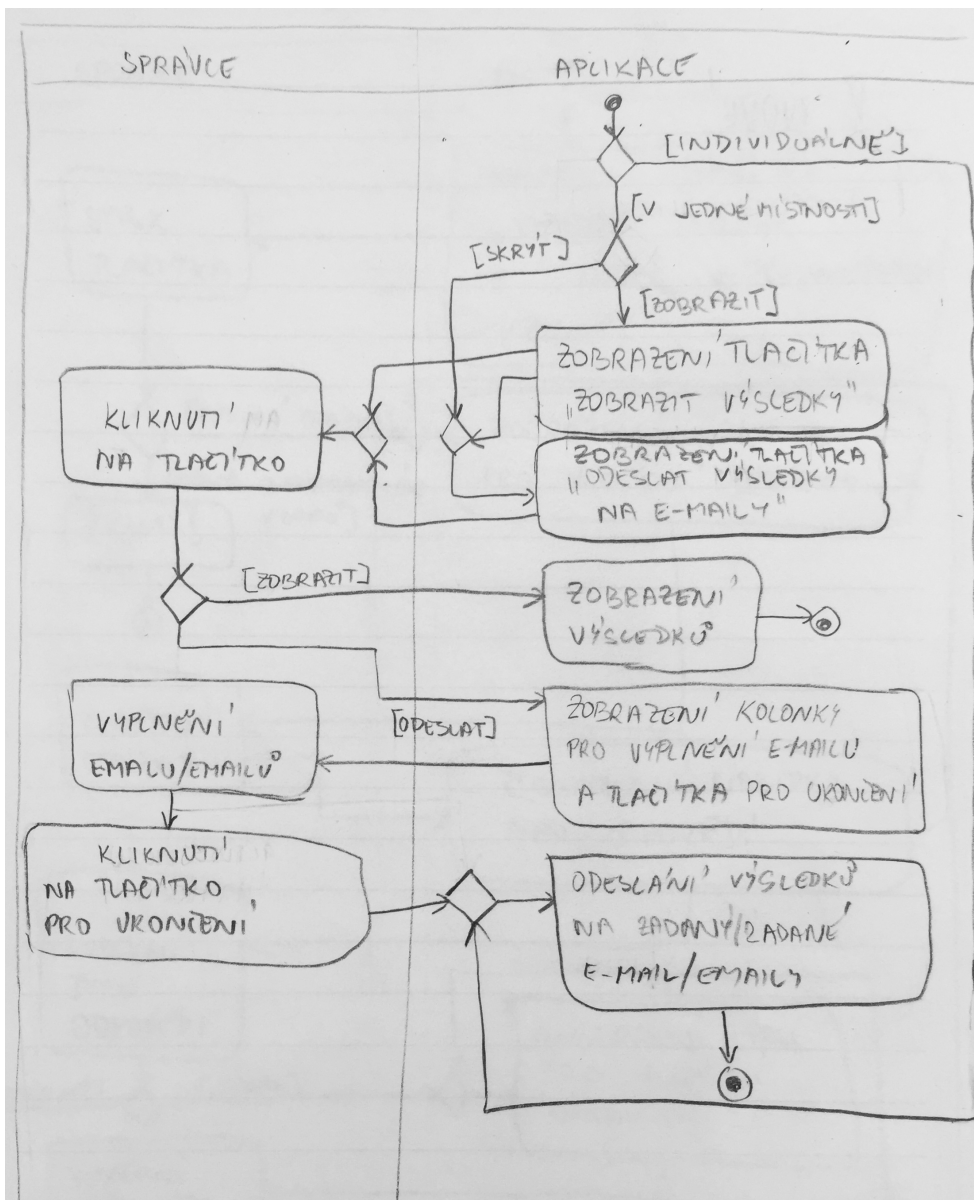 SPRÁVCE
APLIKACE
[INDIVIDUÁLNĚ]
[V JEDNÉ MÍSTNOSTI]
[SKRÝT]
[ZOBRAZIT]
ZOBRAZENÍ TLAČÍTKA
„ZOBRAZIT VÝSLEDKY"
KLIKNUTÍ
NA TLAČÍTKO
ZOBRAZENÍ TLAČÍTKA
„ODESLAT VÝSLEDKY
NA E-MAILY"
[ZOBRAZIT]
ZOBRAZENÍ
VÝSLEDKŮ
[ODESLAT]
ZOBRAZENÍ KOLONKY
PRO VYPLNĚNÍ E-MAILU
A TLAČÍTKA PRO UKONČENÍ
VYPLNĚNÍ
EMAILU/EMAILŮ
KLIKNUTÍ
NA TLAČÍTKO
PRO UKONČENÍ
ODESLÁNÍ VÝSLEDKŮ
NA ZADANÝ/ZADANÉ
E-MAIL/EMAILY